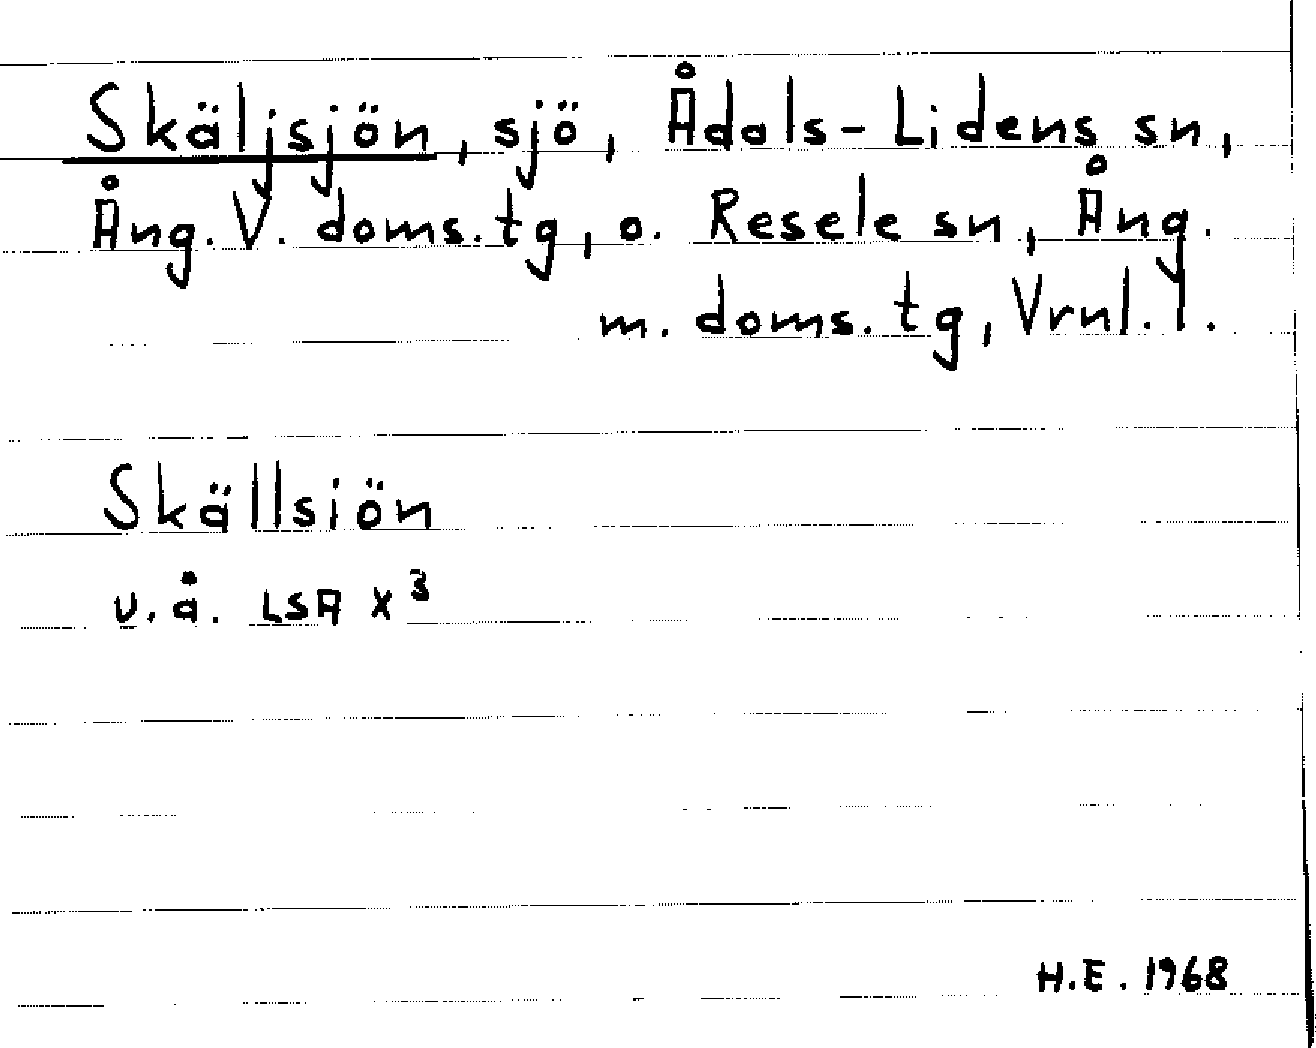 Skäljsjön, sjö, Ådals-Lidens sn,
Ång. V. doms.tg, o. Resele sn, Ång.
m. doms.tg, Vrnl. l.
Skällsiön
u.å. LSA X³
H.E. 1968